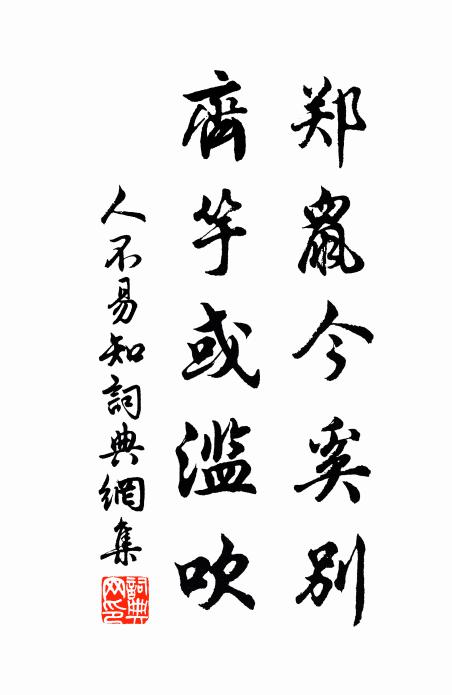 郑鼠今奚别
齊竽或滥吹
人不易知詞典網集
詞典网印